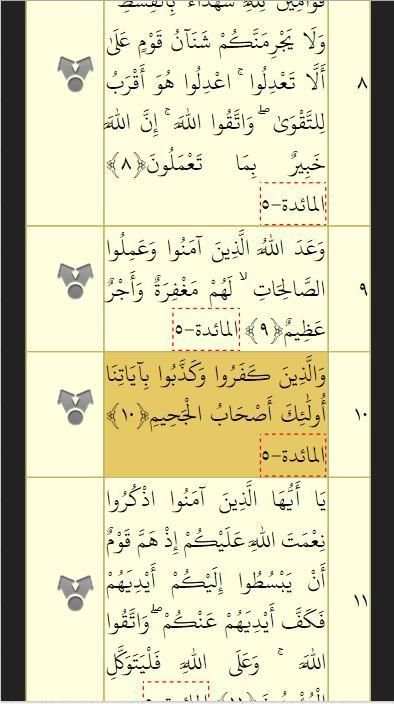 قَوَّامِينَ لِلَّهِ شُهَدَاءَ بِالْقِسْطِ
وَلَا يَجْرِمَنَّكُمْ شَنَآنُ قَوْمٍ عَلَىٰ
٨ أَلَّا تَعْدِلُوا ۚ اعْدِلُوا هُوَ أَقْرَبُ
لِلتَّقْوَىٰ ۖ وَاتَّقُوا اللَّهَ ۚ إِنَّ اللَّهَ
خَبِيرٌ بِمَا تَعْمَلُونَ﴿٨﴾
المائدة-٥
وَعَدَ اللَّهُ الَّذِينَ آمَنُوا وَعَمِلُوا
٩ الصَّالِحَاتِ ۙ لَهُمْ مَغْفِرَةٌ وَأَجْرٌ
عَظِيمٌ﴿٩﴾ المائدة-٥
وَالَّذِينَ كَفَرُوا وَكَذَّبُوا بِآيَاتِنَا
١٠ أُولَٰئِكَ أَصْحَابُ الْجَحِيمِ﴿١٠﴾
المائدة-٥
يَا أَيُّهَا الَّذِينَ آمَنُوا اذْكُرُوا
نِعْمَتَ اللَّهِ عَلَيْكُمْ إِذْ هَمَّ قَوْمٌ
أَنْ يَبْسُطُوا إِلَيْكُمْ أَيْدِيَهُمْ
١١ فَكَفَّ أَيْدِيَهُمْ عَنْكُمْ ۖ وَاتَّقُوا
اللَّهَ ۚ وَعَلَى اللَّهِ فَلْيَتَوَكَّلِ